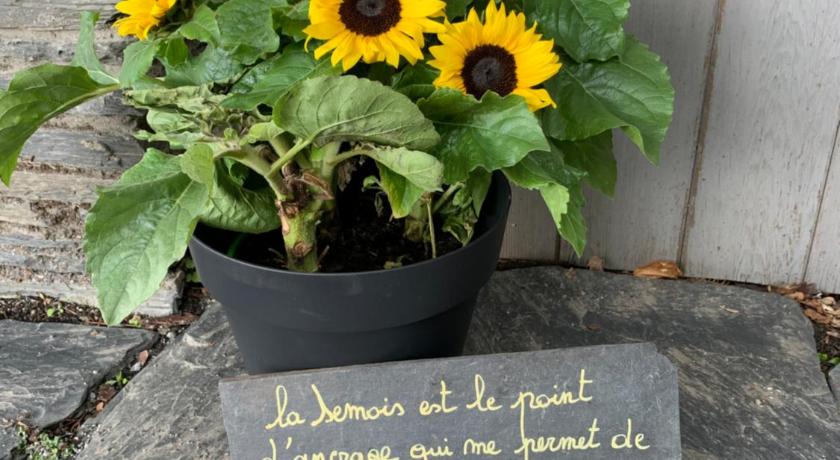 la Semois est le point
d'ancrage qui me permet de